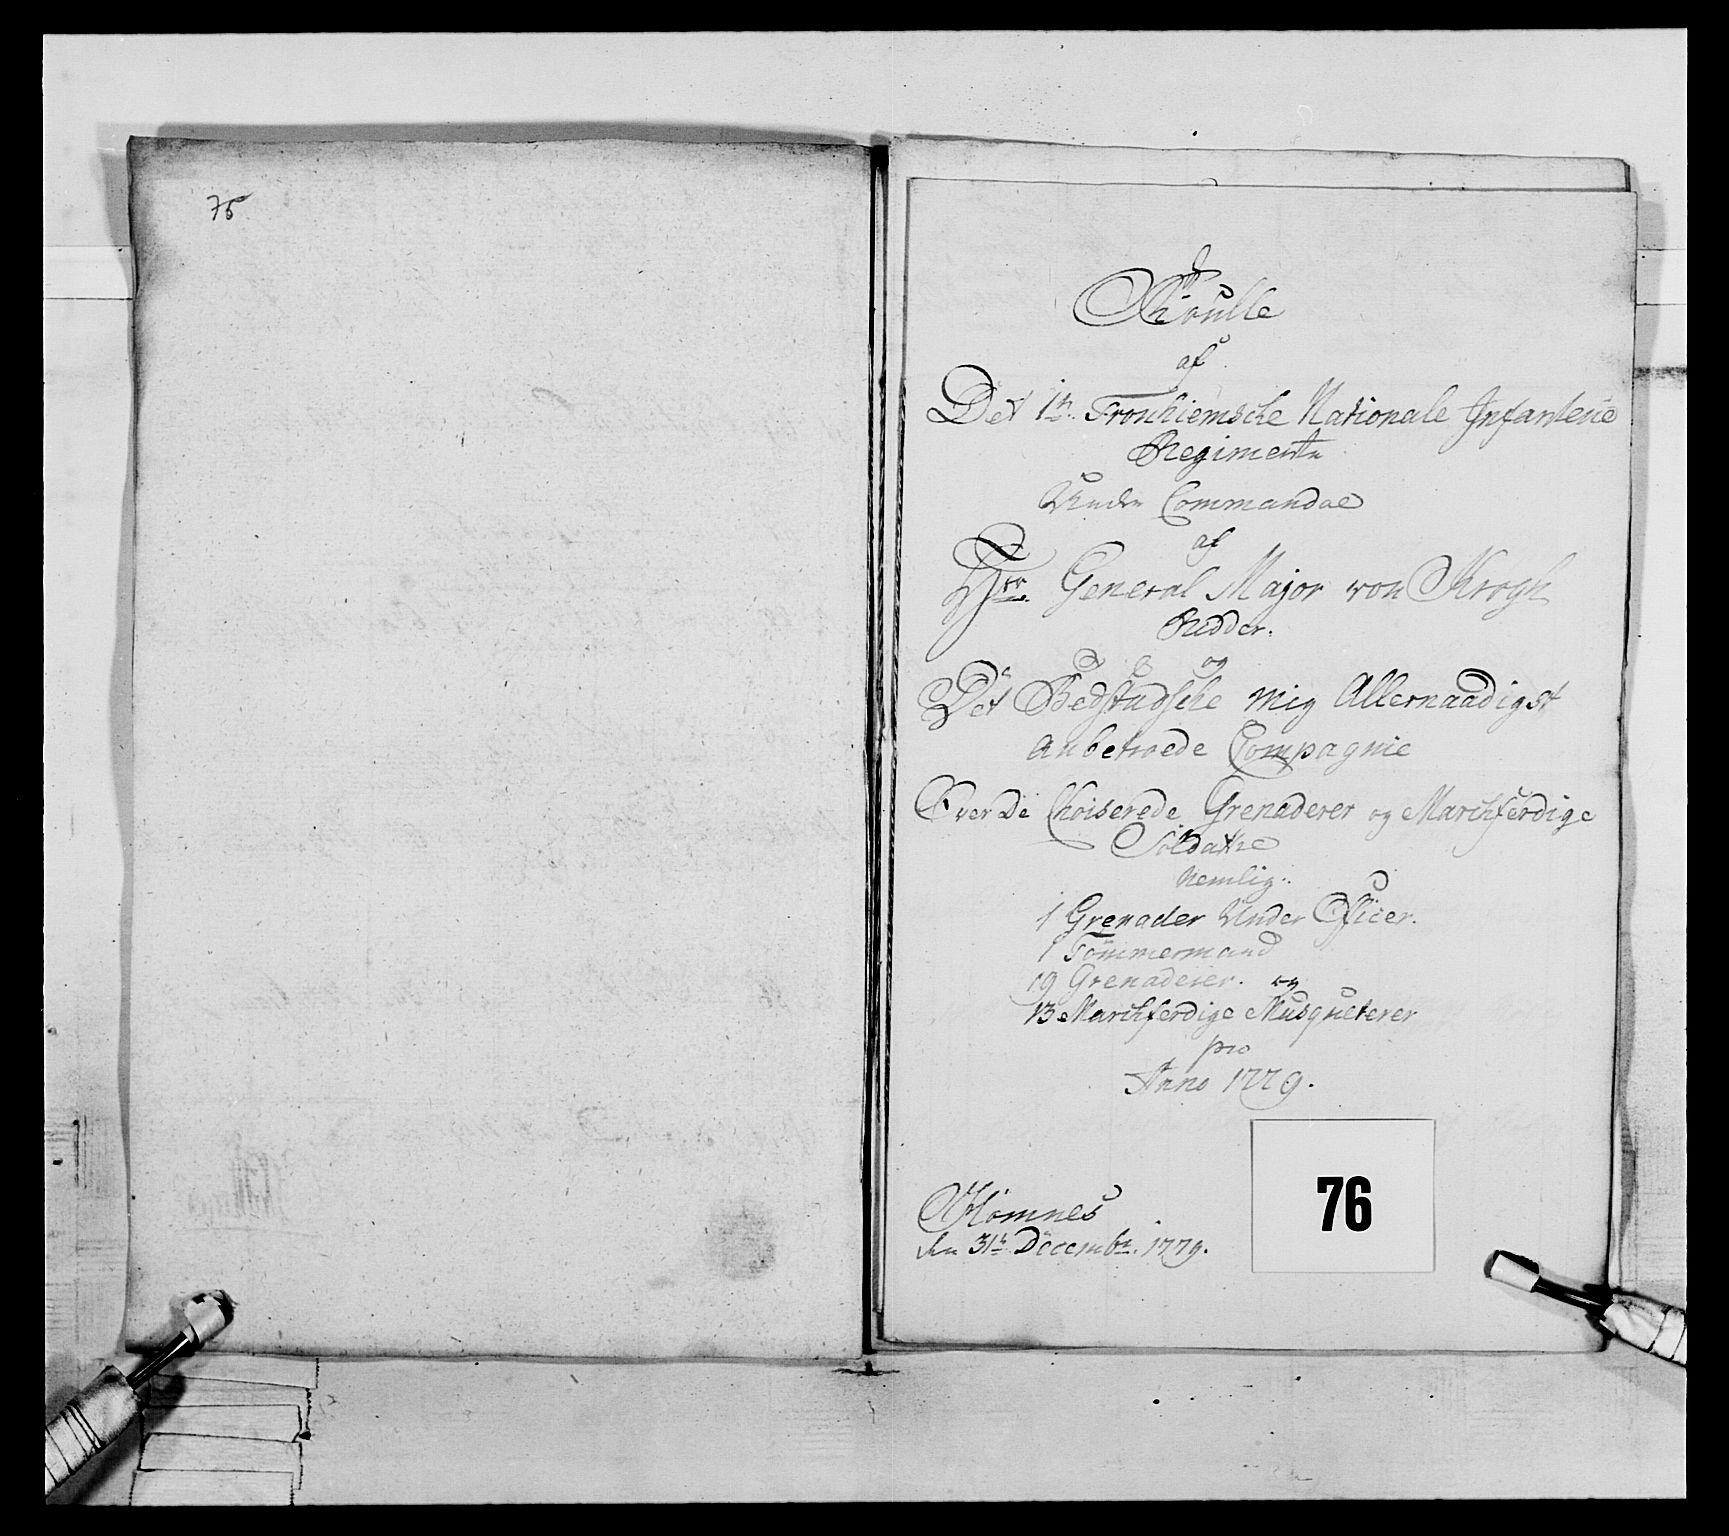 75
Roulle
af
Det 1te Tronhiemsche Nationale Infanterie
Regimente
Under Commandoe
af
Hrr. General Major von Krogh
Ridder.
og
Det Bedstadsche mig Allernaadigst
anbetroede Compagnie
Over De Choiserede Grenaderer og Marchferdige
Soldatte
Nemlig:
1 Grenader Under Officer.
1 Tømmermand
19 Grenaderer. og
13 Marchferdige Musqueterer
pro
Anno 1779.
Hømnes
den 31te Decembr. 1779.
76